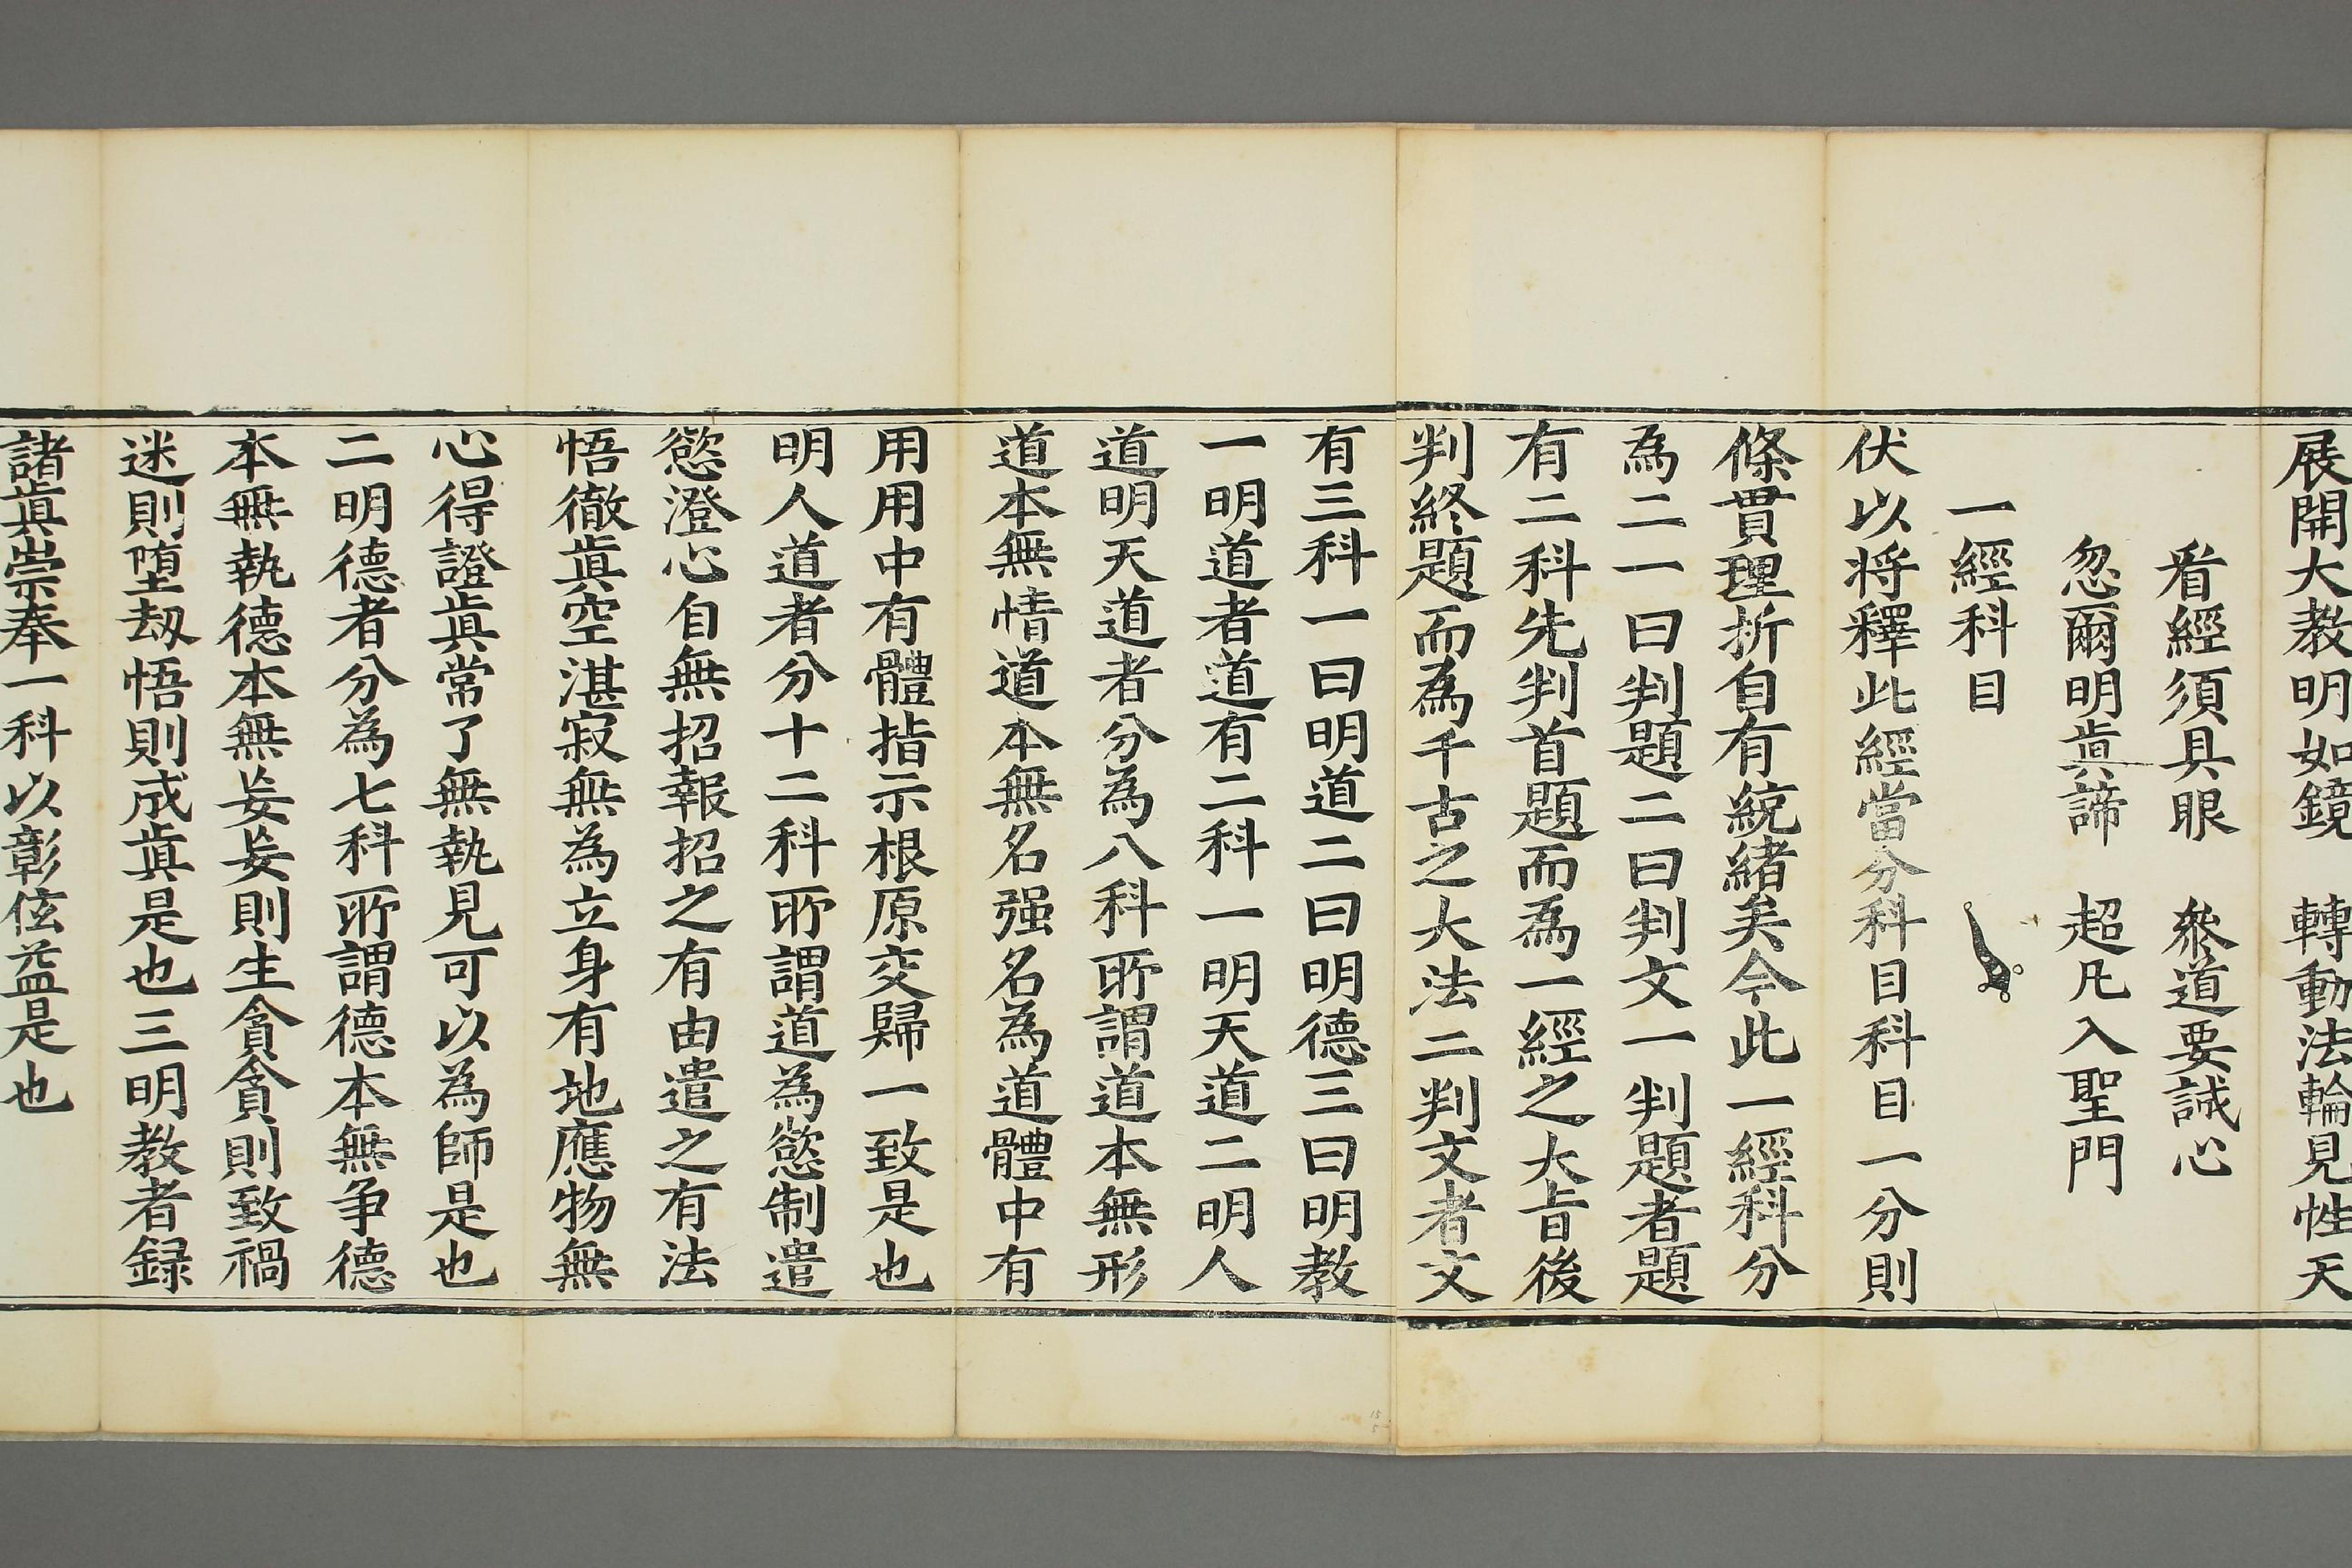 展開大教明如鏡　轉動法輪見性天
看經須具眼　叅道要誠心
忽爾明眞諦　超凡入聖門
一經科目
伏以将釋此經當分科目科目一分則
條貫理折自有統緒矣今此一經科分
為二一曰判題二曰判文一判題者題
有二科先判首題而為一經之大旨後
判終題而為千古之大法二判文者文
有三科一曰明道二曰明德三曰明教
一明道者道有二科一明天道二明人
道明天道者分為八科所謂道本無形
道本無情道本無名强名為道體中有
用用中有體指示根原交歸一致是也
明人道者分十二科所謂道為慾制遣
慾澄心自無招報招之有由遣之有法
悟徹眞空湛寂無為立身有地應物無
心得證眞常了無執見可以為師是也
二明德者分為七科所謂德本無争德
本無執德本無妄妄則生貪貪則致禍
迷則堕劫悟則成眞是也三明教者録
諸眞崇奉一科以彰俽益是也